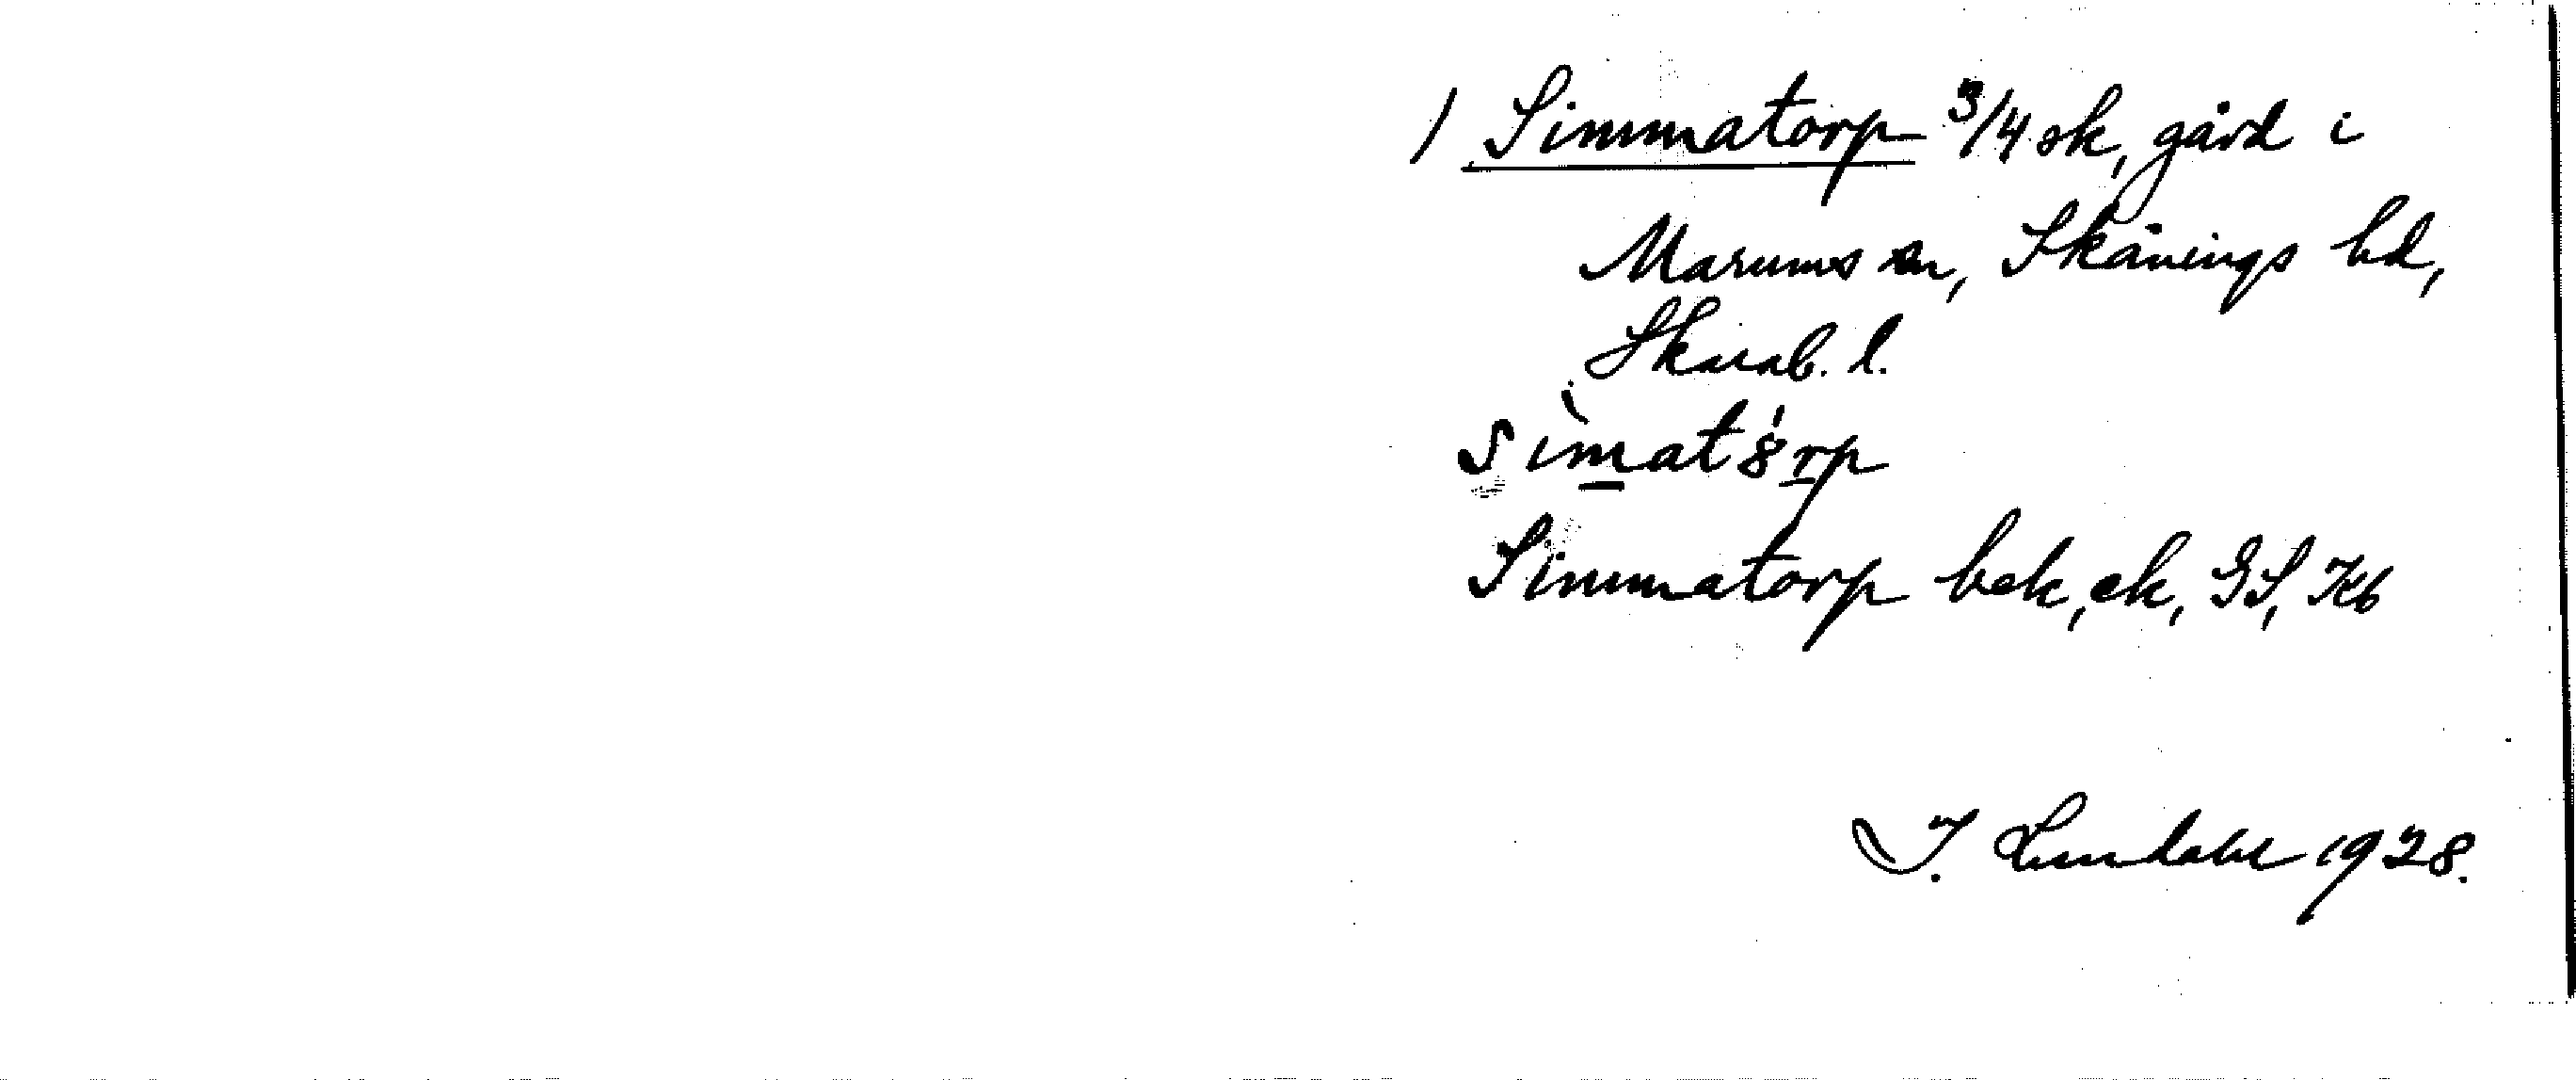 ) Simmatorp 3/4 sk, gård i
Marums sn, Skånings hd,
Skarab. l.
sìmat8́rp
Simmatorp bek, ek, GS, Kb
I. Lundahl 1928.